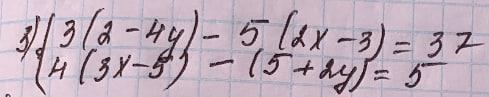 3) { 3(2-4y) - 5(2x-3) = 37
4(3x-5) - (5+2y) = 5